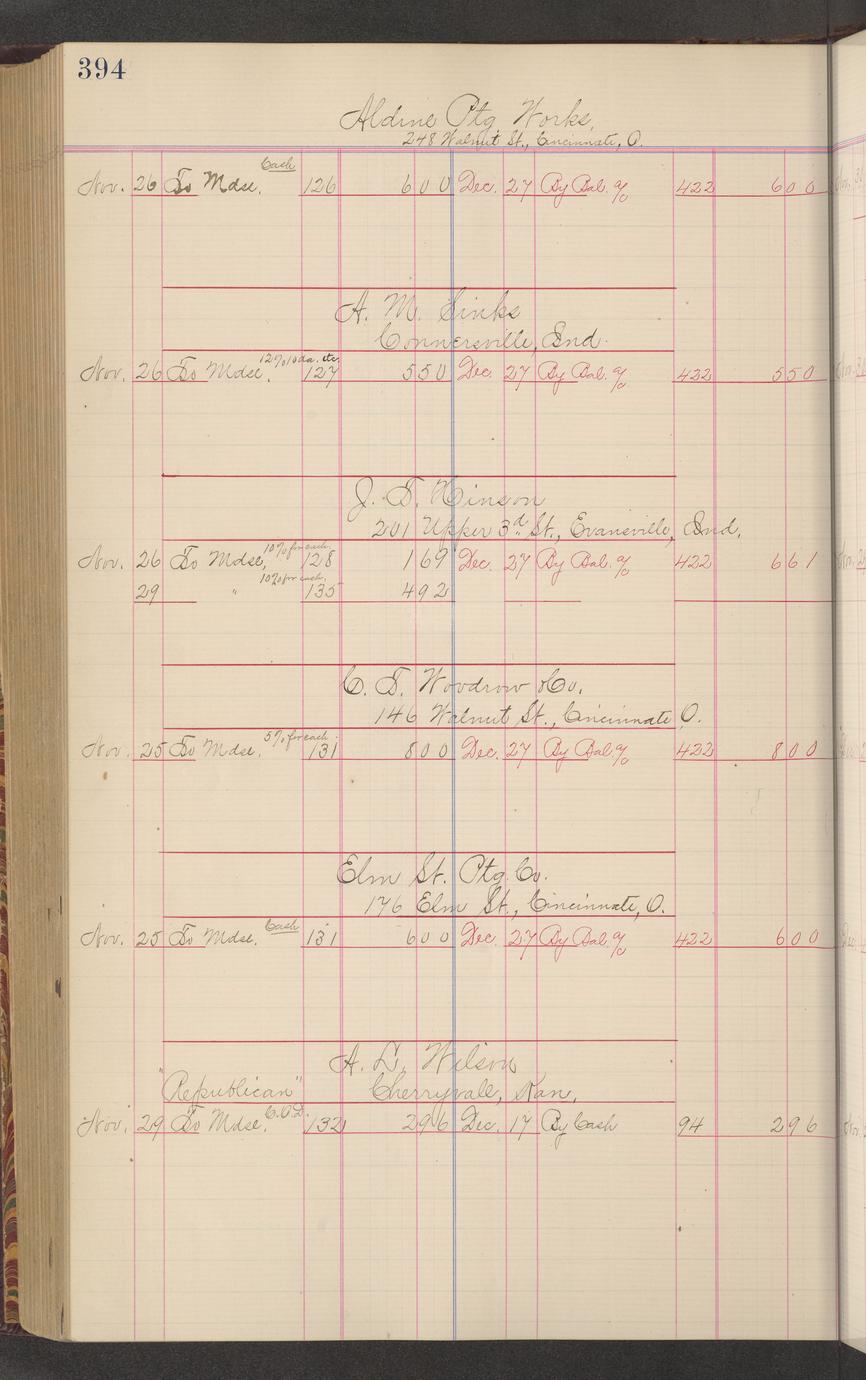 394
Aldine Ptg. Works,
248 Walnut St., Cincinnati, O.
Cash
Nov. 26 To Mdse. 126 6 00 Dec. 27 By Bal. % 422 6 00
A. M. Sinks
Connersville, Ind.
12% 10 da. etc.
Nov. 26 To Mdse. 127 5 50 Dec. 27 By Bal. % 422 5 50
J. T. Hinson
201 Upper 3d St., Evansville, Ind.
10% for cash.
Nov. 26 To Mdse, 128 1 69 Dec. 27 By Bal. % 422 6 61
10% for cash.
29 " 135 4 92
C. T. Woodrow & Co.
146 Walnut St., Cincinnati O.
5% for cash.
Nov. 25 To Mdse. 131 8 00 Dec. 27 By Bal. % 422 8 00
Elm St. Ptg. Co.
176 Elm St., Cincinnati, O.
Cash
Nov. 25 To Mdse. 131 6 00 Dec. 27 By Bal. % 422 6 00
A. L. Wilson
"Republican" Cherryvale, Kan.
C.O.D.
Nov. 29 To Mdse. 132 2 96 Dec. 17 By Cash 94 2 96